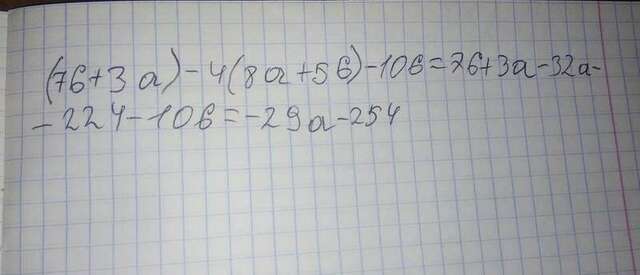 (76+3a)-4(8a+56)-106=76+3a-32a-
-224-106=-29a-254